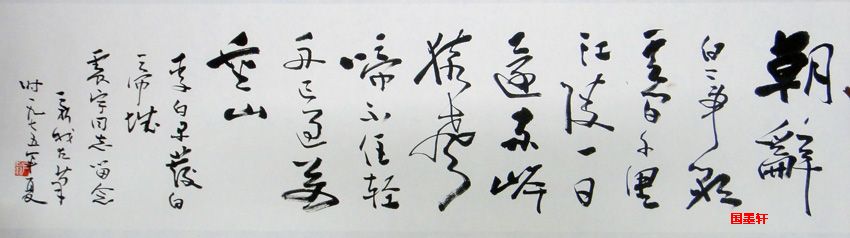 朝辭
白帝彩
雲間千里
江陵一日
還兩岸
猿聲
啼不住輕
舟已過萬
重山
李白早發白
帝城
震宇同志留念
新我左筆
时一九七五年夏
国墨轩